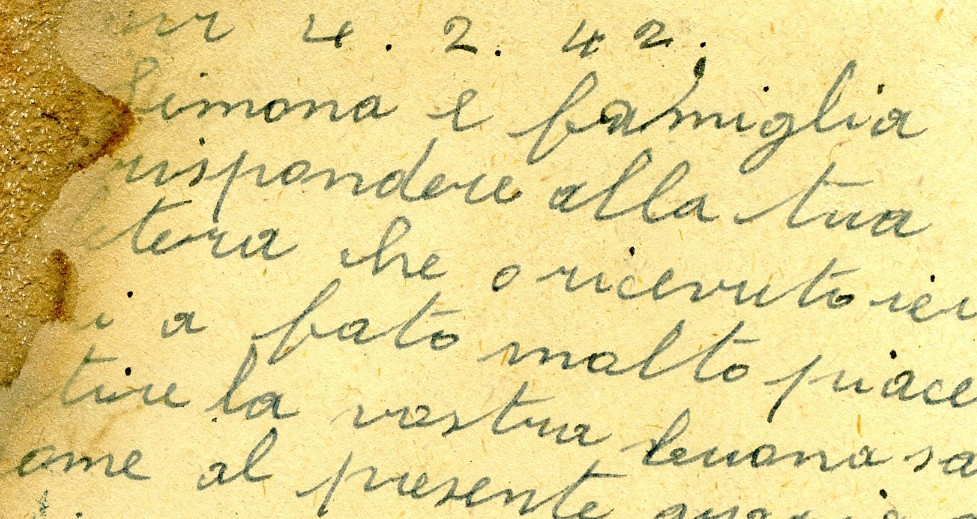 4.2.42.
Simona e famiglia
rispondere alla tua
letera che o ricevuto ier
a fato molto piace
tire la vostra buona sa
ome al presente